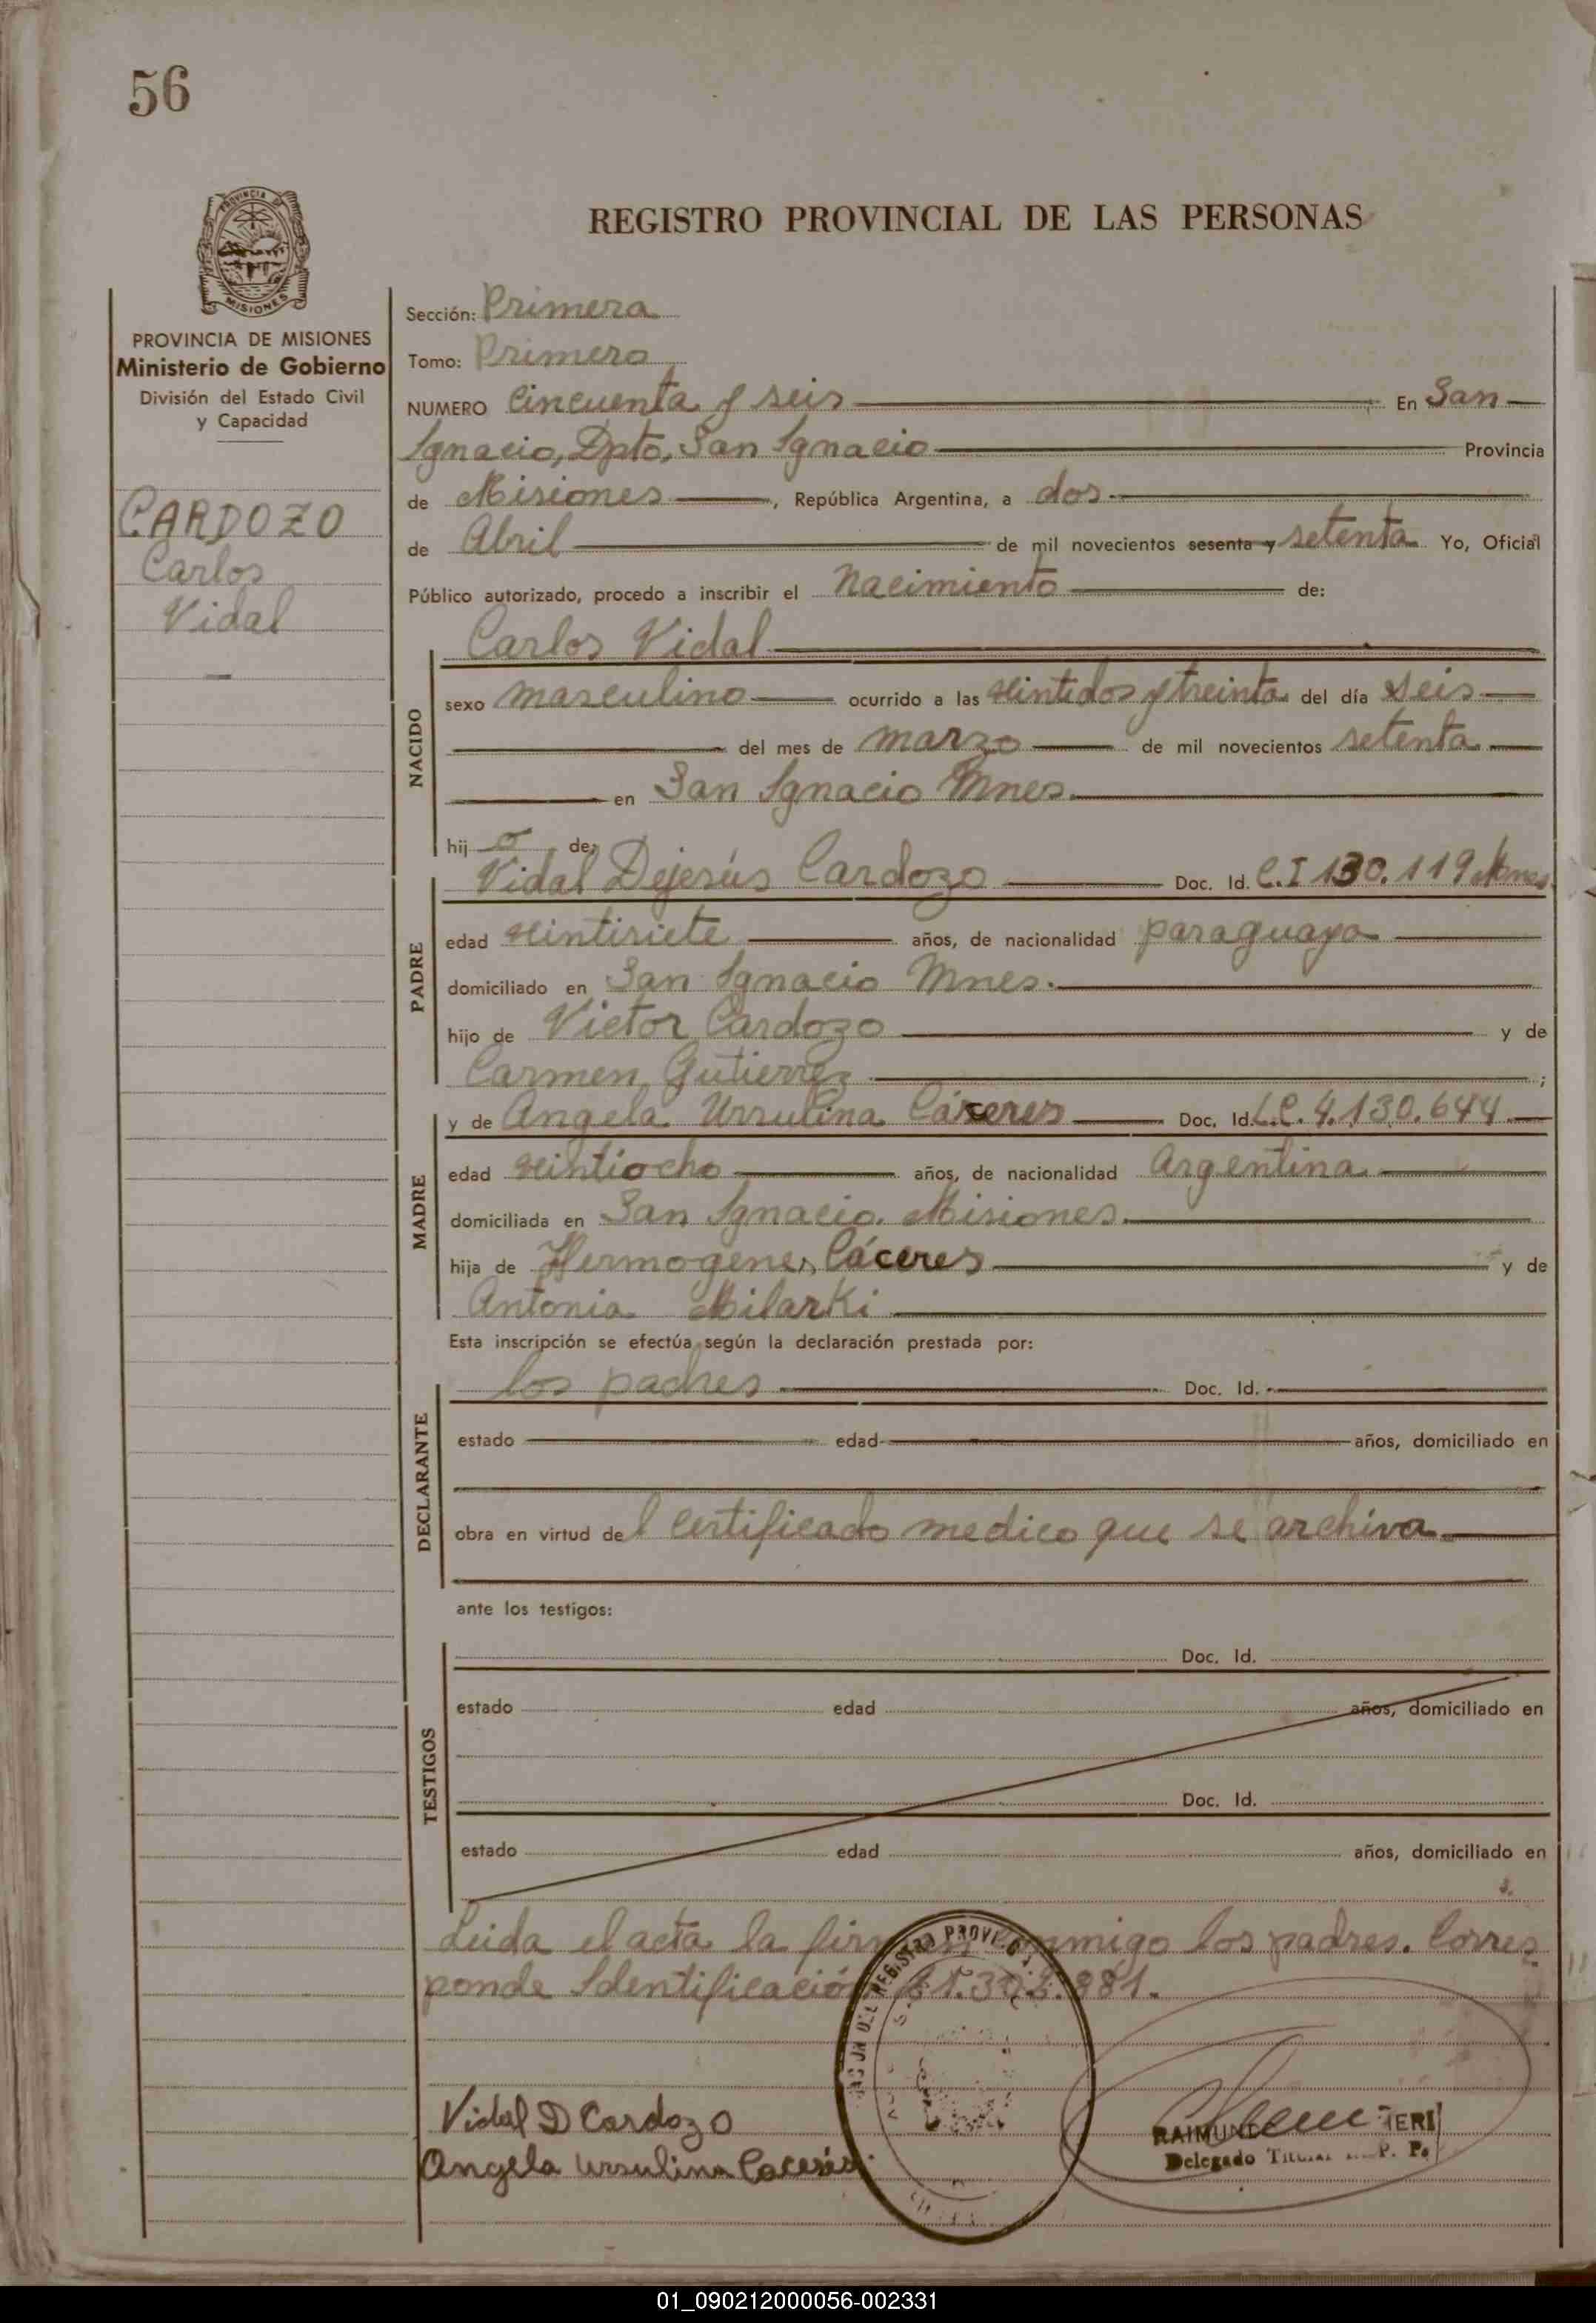 56
PROVINCIA DE MISIONES
Ministerio de Gobierno
División del Estado Civil
y Capacidad
CARDOZO
Carlos
Vidal
REGISTRO PROVINCIAL DE LAS PERSONAS
Sección: Primera
Tomo: Primero
NUMERO Cincuenta y seis En San
Ignacio, Dpto, San Ignacio Provincia
de Misiones, República Argentina, a dos
de Abril de mil novecientos sesenta y setenta Yo, Oficial
Público autorizado, procedo a inscribir el nacimiento de:
Carlos Vidal
NACIDO
sexo masculino ocurrido a las veintidos y treinta del día seis
del mes de marzo de mil novecientos setenta
en San Ignacio Mnes.
hij o de:
Vidal Dejesús Cardozo Doc. Id. C.I 130.119 Mnes.
PADRE
edad veintisiete años, de nacionalidad paraguaya
domiciliado en San Ignacio Mnes.
hijo de Victor Cardozo y de
Carmen Gutierrez ;
y de Angela Ursulina Cáceres Doc. Id. L.C. 4.130.644
MADRE
edad veintiocho años, de nacionalidad Argentina
domiciliada en San Ignacio. Misiones.
hija de Hermogenes Cáceres y de
Antonia Milarki
Esta inscripción se efectúa según la declaración prestada por:
los padres Doc. Id.
DECLARANTE
estado edad años, domiciliado en
obra en virtud del certificado medico que se archiva
ante los testigos:
Doc. Id.
TESTIGOS
estado edad años, domiciliado en
Doc. Id.
estado edad años, domiciliado en
Leida el acta la los padres. Corres
ponde Identificación
Vidal D Cardozo
Angela Ursulina Caceres
Delegado
01_090212000056-002331